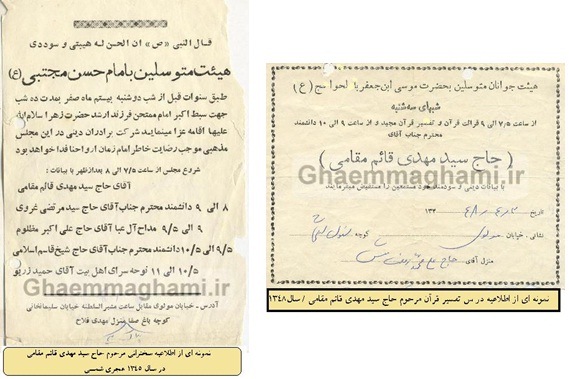 قال النبی «ص» ان الحسن له هیبتی و سوددی
هیئت متوسلین بامام حسن مجتبی (ع)
طبق سنوات قبل از شب دوشنبه بیستم ماه صفر بمدت ده شب
جهت سبط اکبر امام ممتحن فرزند ارشد حضرت زهرا سلام الله
علیها اقامه عزا مینمایند شرکت برادران دینی در این مجلس
مذهبی موجب رضایت خاطر امام زمان ارواحنا فداه خواهد بود
شروع مجلس از ساعت ۷/۵ الی ۸ بعدازظهر با بیانات :
آقای حاج سید مهدی قائم مقامی
۸ الی ۹ دانشمند محترم جناب آقای حاج سید مرتضی غروی
۹ الی ۹/۵ مداح آل عبا آقای حاج علی اکبر مظلوم
۹/۵ الی ۱۰/۵ دانشمند محترم جناب آقای حاج شیخ قاسم اسلامی
۱۰/۵ الی ۱۱ نوحه سرای اهل بیت آقای حمید زریو
آدرس - خیابان مولوی مقابل ساعت مشیرالسلطنه خیابان سلیمانخانی
کوچه باغ صفا منزل مهدی فلاح
Ghaemmaghami.ir
نمونه ای از اطلاعیه سخنرانی مرحوم حاج سید مهدی قائم مقامی
در سال ۱۳۴۵ هجری شمسی
هیئت جوانان متوسلین بحضرت موسی ابن جعفر باب الحوائج (ع)
شبهای سه شنبه
از ساعت ۷/۵ الی ۹ قرائت قرآن و تفسیر قرآن مجید و از ساعت ۹ الی ۱۰ دانشمند
محترم جناب آقای
( حاج سید مهدی قائم مقامی )
با بیانات دینی و سودمند خود مستمعین را مستفیض میفرمایند
Ghaemmaghami.ir
تاریخ ۴۸/۴/۲ ۱۳۴
نشانی . خیابان مولوی کوچه
منزل آقای حاج
نمونه ای از اطلاعیه درس تفسیر قرآن مرحوم حاج سید مهدی قائم مقامی / سال ۱۳۴۸